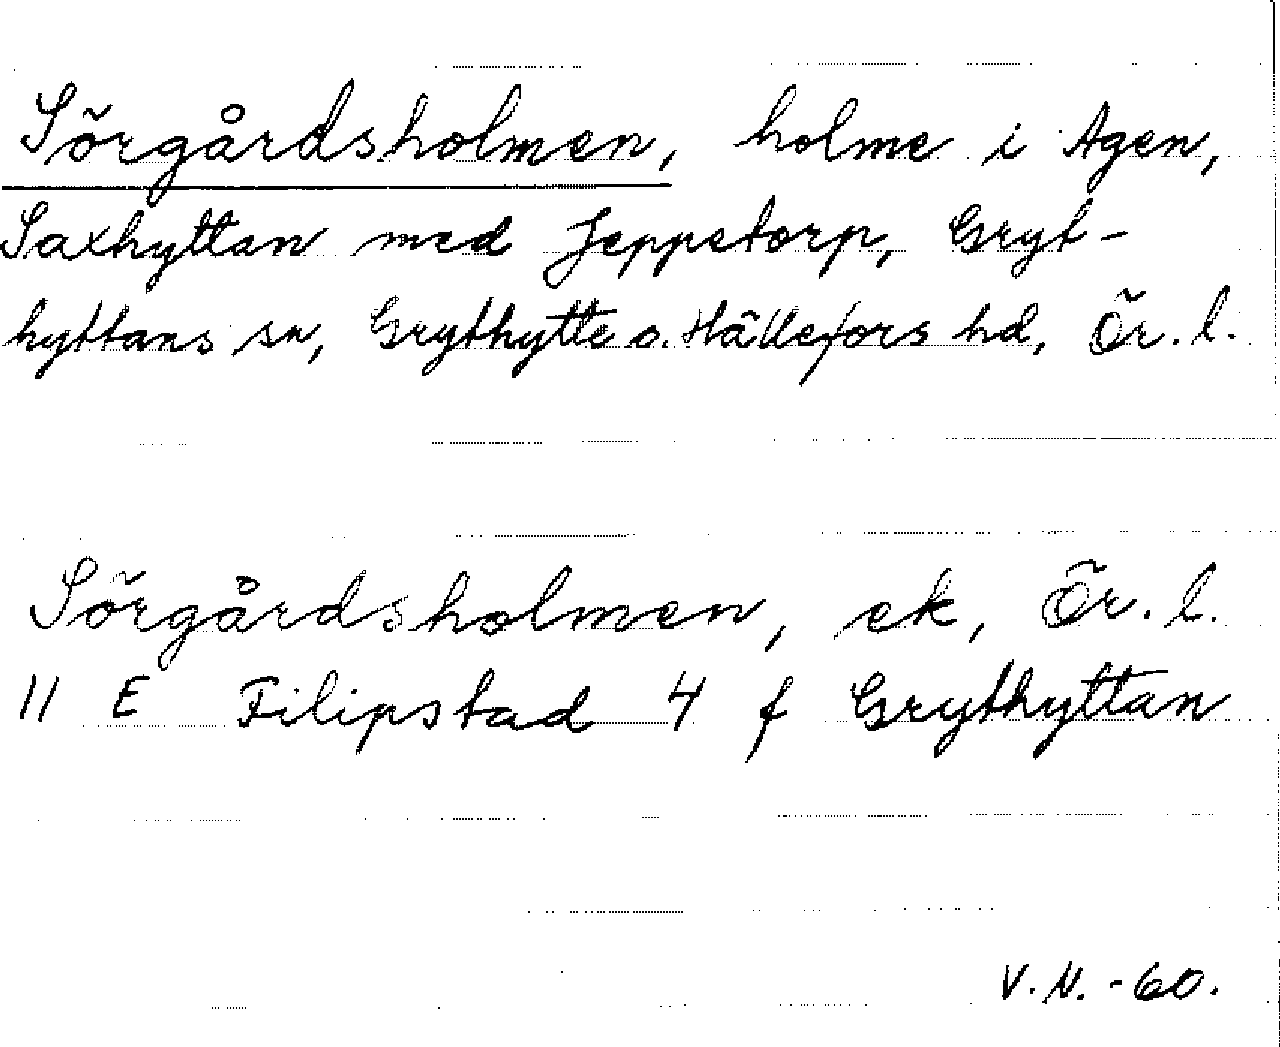 Sörgårdsholmen, holme i Agen,
Saxhyttan med Jeppetorp, Gryt-
hyttans sn, Grythytte o. Hällefors hd, Ör. l.
Sörgårdsholmen, ek, Ör. l.
11 E Filipstad 4 f Grythyttan
V.N. -60.